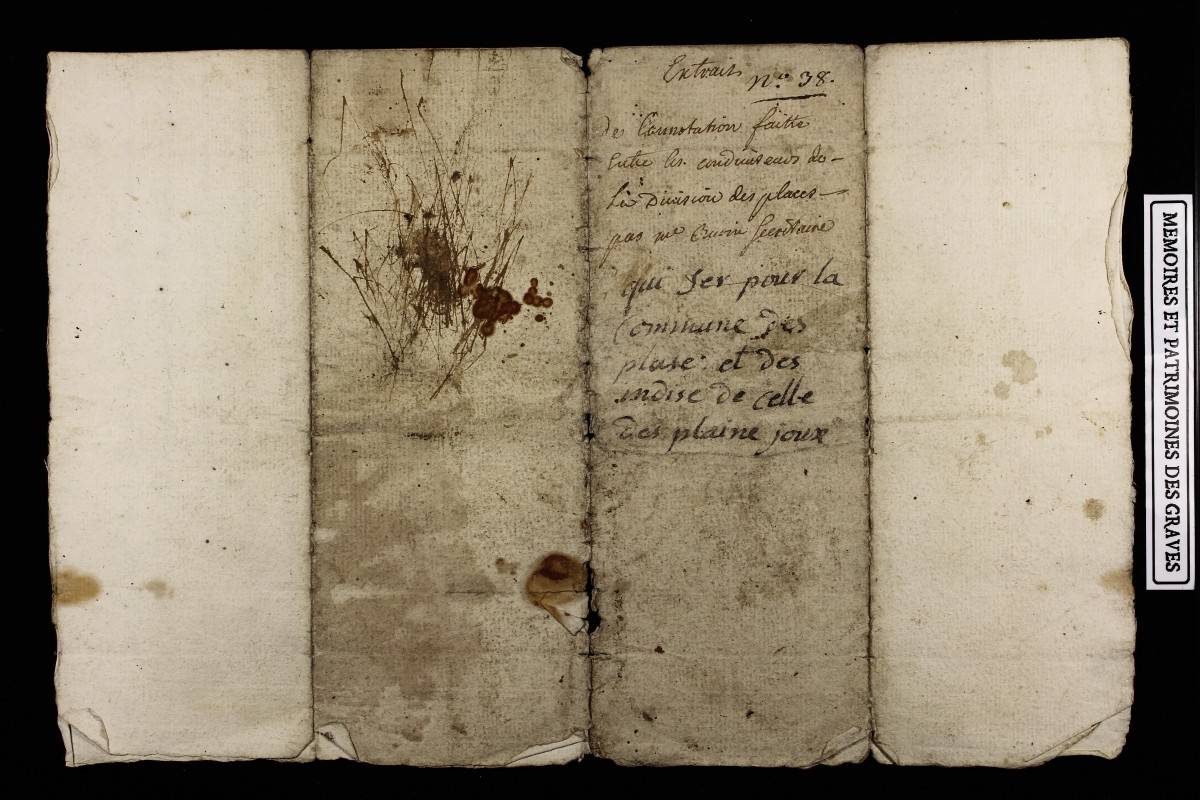 Extrait
n.o 38.
de Connotation faitte
Entre les conduiseurs de
La Division des places
pas me Secretaire
qui Ser pour la
Commune des
plase: et des
indise de celle
des plaine joux
MEMOIRES ET PATRIMOINES DES GRAVES